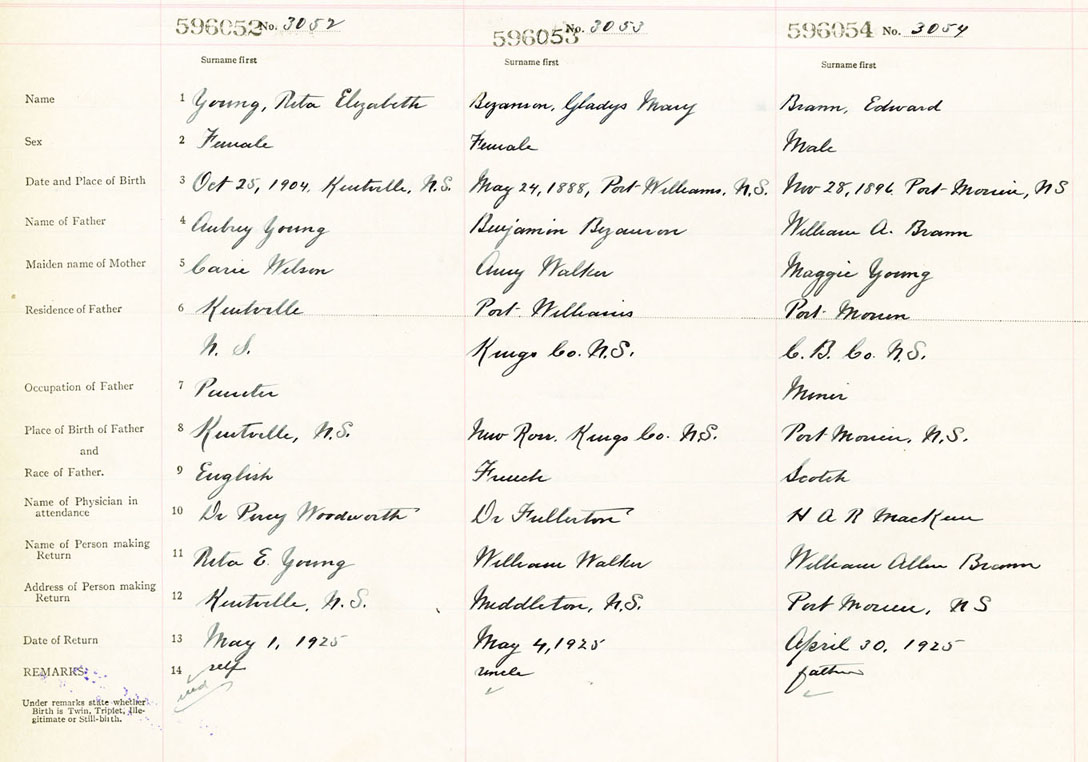 596052 No. 3052 596053 No. 3053 596054 No. 3054
Surname first Surname first Surname first
Name 1 Young, Rita Elizabeth Bezanson, Gladys Mary Brann, Edward
Sex 2 Female Female Male
Date and Place of Birth 3 Oct 25, 1904, Kentville, N.S. May 24, 1888, Port Williams, N.S. Nov 28, 1896 Port Morien, NS
Name of Father 4 Aubrey Young Benjamin Bezanson William A. Brann
Maiden name of Mother 5 Carie Wilson Amy Walker Maggie Young
Residence of Father 6 Kentville Port Williams Port Morien
N. S. Kings Co. N.S. C. B. Co. N.S.
Occupation of Father 7 Painter Miner
Place of Birth of Father 8 Kentville, N.S. New Ross. Kings Co. N.S. Port Morien, N.S.
and
Race of Father. 9 English French Scotch
Name of Physician in
attendance 10 Dr Percy Woodworth Dr Fullerton H A R MacKeen
Name of Person making
Return 11 Rita E. Young William Walker William Allen Brann
Address of Person making
Return 12 Kentville, N.S. Middleton, N.S. Port Morien, NS
Date of Return 13 May 1, 1925 May 4, 1925 April 30, 1925
REMARKS: 14 self uncle father
Under remarks state whether
Birth is Twin, Triplet, Ille-
gitimate or Still-birth.